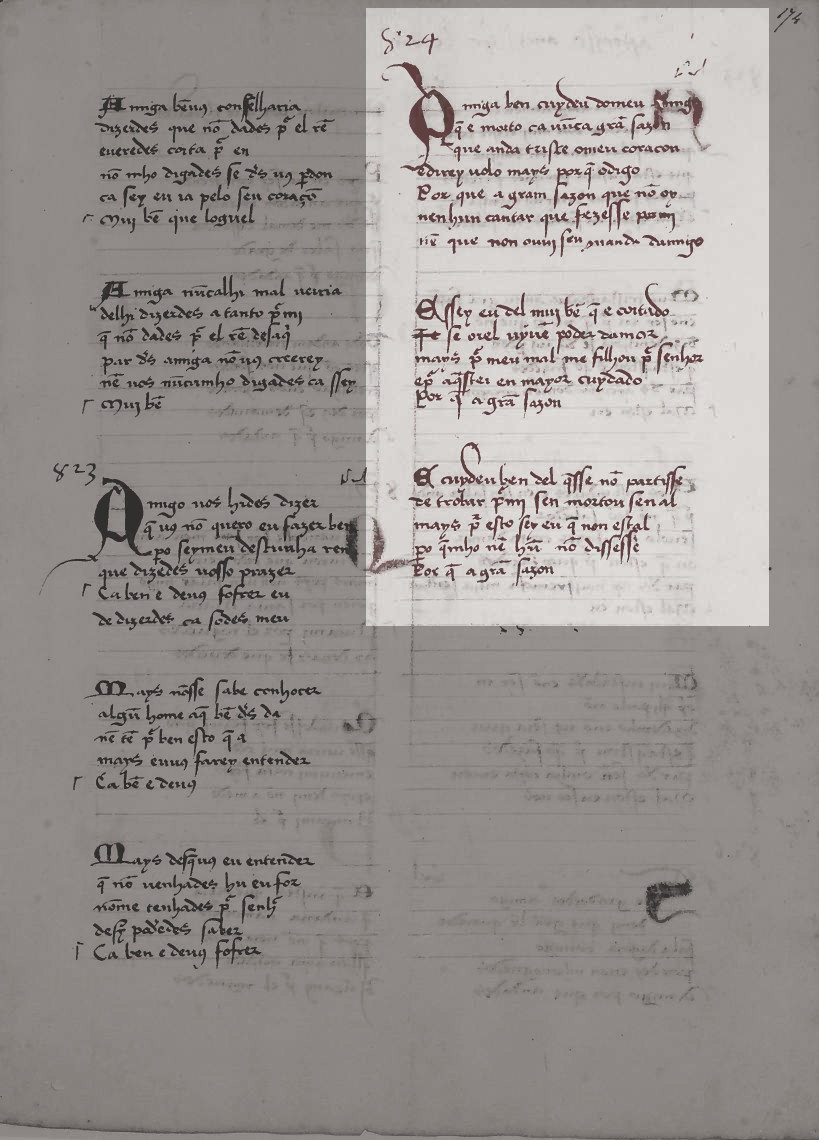 174
Amiga ben uꝯ conselharia
dizerdes que nō dades pᷓ el rē
eueredes coita pᷓ en
nō mho digades se d̄s uꝯ ꝑdon
ca sey eu ia pelo seu coraçō
Mui bē que loguel
Amiga nūcalhi mal ueiria
delhi dizerdes atanto pᷓmi
q̄ nō dades pᷓ el rē desaq̇
par d̄s amiga nōuꝯ creerey
nē uos nūcamho digades ca ssey
Mui bē
823
Amigo uos hides dizer
q̄ uꝯ nō quero eu fazer ben
ꝑo seymeu desturha ren
que dizedes uosso prazer
Ca ben e deuꝯ sofrer eu
de dizerdes ca sodes meu
Mays nōsse sabe conhocer
algū home aq̄ bē d̄s da
nē tē pᷓ ben esto q̄ a
mays euuꝯ farey entender
Ca bē e deuꝯ
Mays desq̄uꝯ eu entender
q̄ nō uenhades hu eu for
nōme tenhades pᷓ senhꝰ
desy podedes saber
Ca ben e deuꝯ sofrer
824
Amiga ben cuydeu domeu amigo
q̄ e morto ca nūca grā sazon
que anda triste omeu coraçon
edirey uolo mays por q̄ odigo
Por que a gram sazon que nō oy
nenhun cantar que fezesse por mi
nē que non ouui seu mandādamigo
E ssey eu del mui bē q̄ e coitado
se oiel uyuē poder damor
mays pᷓ meu mal me filhou pᷓ senhor
epᷓ aq̄stei en mayor cuydado
Por q̄ a grā sazon
E cuydeu ben del q̄sse nō partisse
de trobar pᷓmi sen mortou sen al
mays pᷓ esto sey eu q̄ non estal
ꝑo q̄mho nē hū nō dissesse
Por q̄ a grā sazon